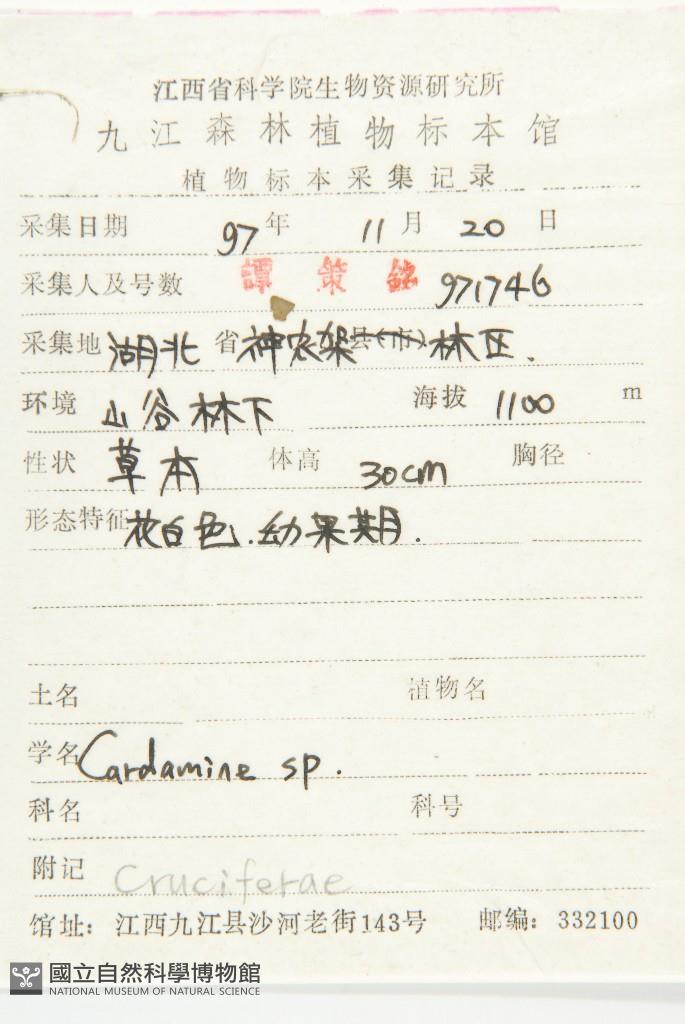 江西省科学院生物资源研究所
九江森林植物标本馆
植物标本采集记录
采集日期 97 年 11 月 20 日
采集人及号数 譚策銘 971746
采集地 湖北 省 神农架县(市) 林区.
环境 山谷林下 海拔 1100 m
性状 草本 体高 30cm 胸径
形态特征 花白色.幼果期.
土名 植物名
学名 Cardamine sp.
科名 科号
附记 Cruciferae
馆址:江西九江县沙河老街143号 邮编:332100
國立自然科學博物館
NATIONAL MUSEUM OF NATURAL SCIENCE